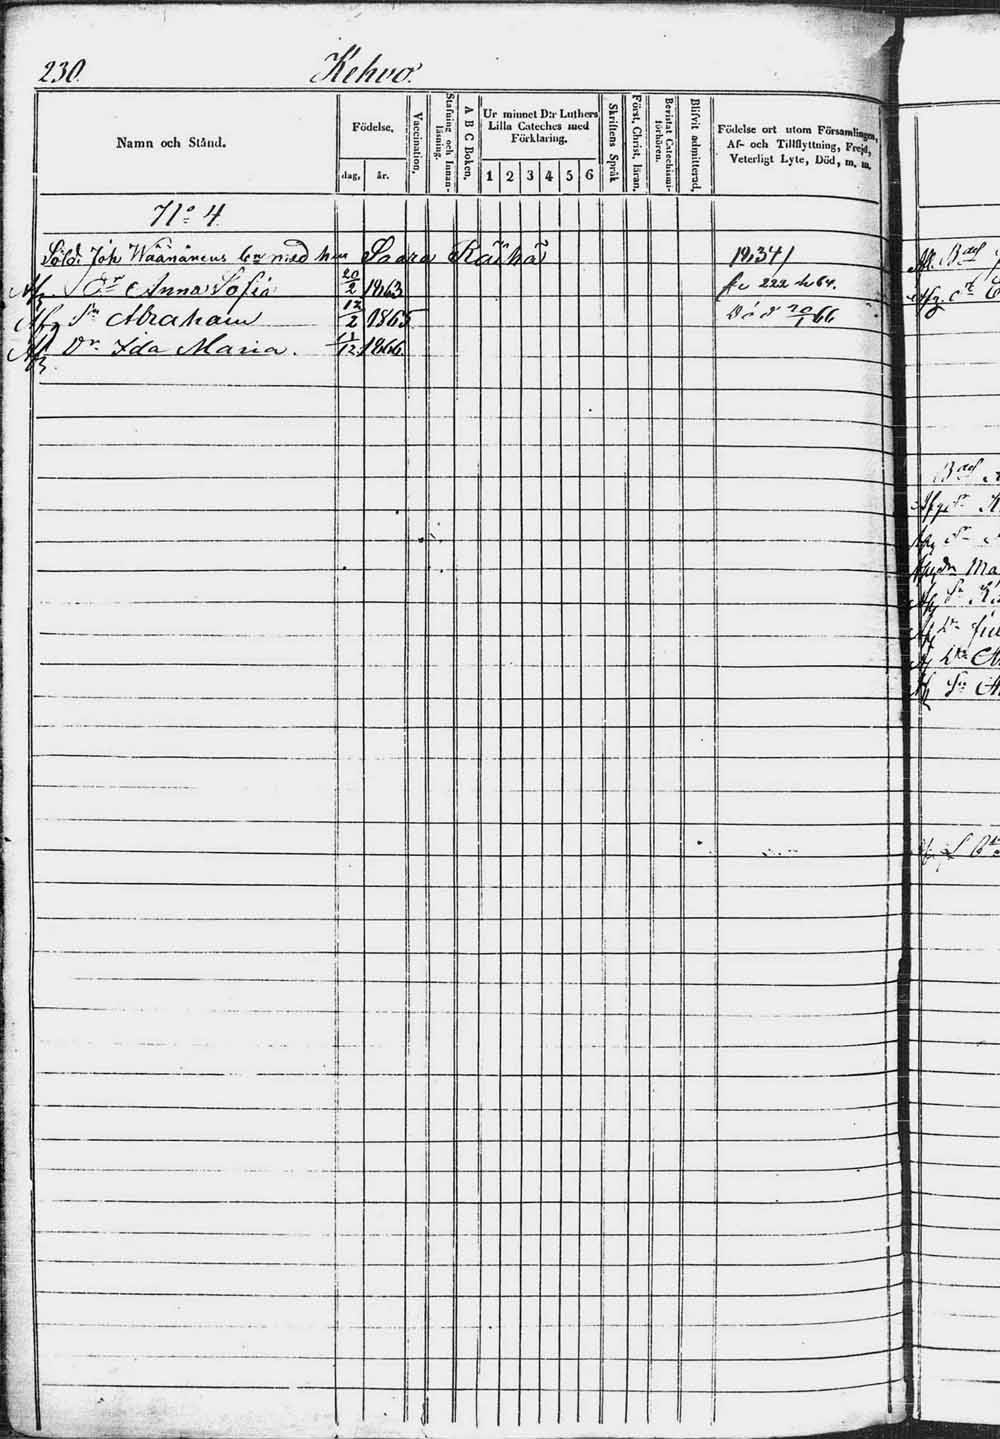 230.
Kehvo.
Namn och Stånd.
Födelse,
dag,
år.
Vaccination,
Stafning och Innan-
läsning.
A B C Boken,
Ur minnet D:r Luthers
Lilla Cateches med
Förklaring.
1 2 3 4 5 6
Skriftens Språk
Först, Christ, läran,
Bevistat Catechismi-
förhören.
Blifvit admitterad,
Födelse ort utom Församlingen,
Af- och Tillflyttning, Frejd,
Veterligt Lyte, Död, m. m.
No 4
Sold. Joh Wäänänens med hu Saara Räihä
Afg Dr Anna Sofia 20/2 1863 222 64.
Afg Sn Abraham 12/2 1865 Död 20/1 66
Afg Dr Ida Maria. /12 1866